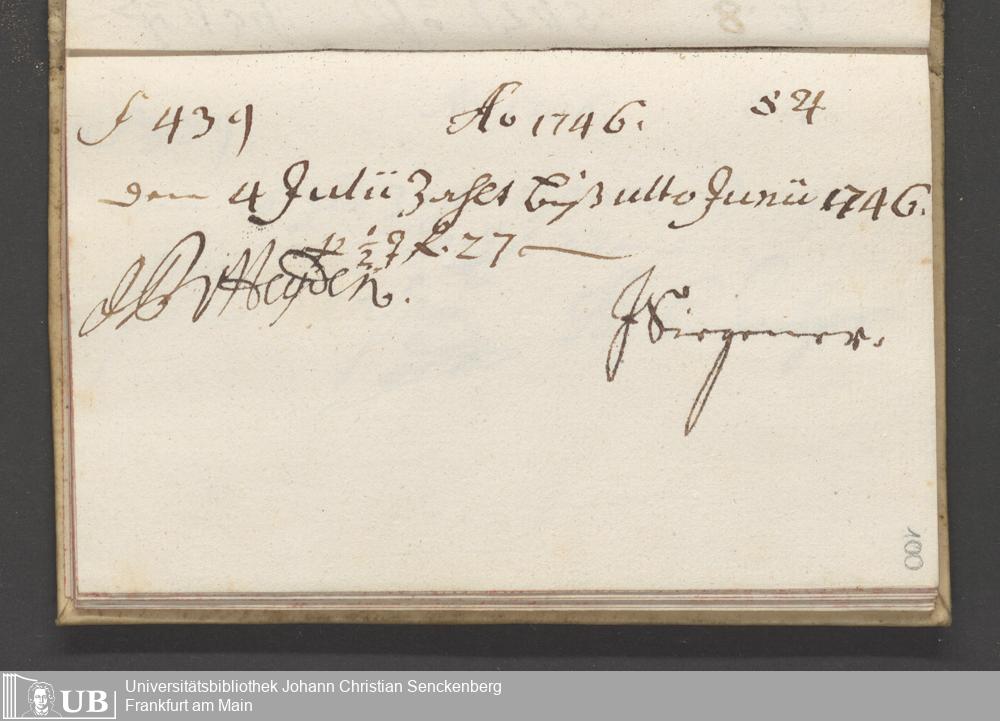 f 439 Ao 1746. S 24
dem 4 Julii Zahlt biß ulto Junii 1746.
p 1/2 J f. 27
JB v Heyden. J Siegener.
100
UB Universitätsbibliothek Johann Christian Senckenberg
Frankfurt am Main